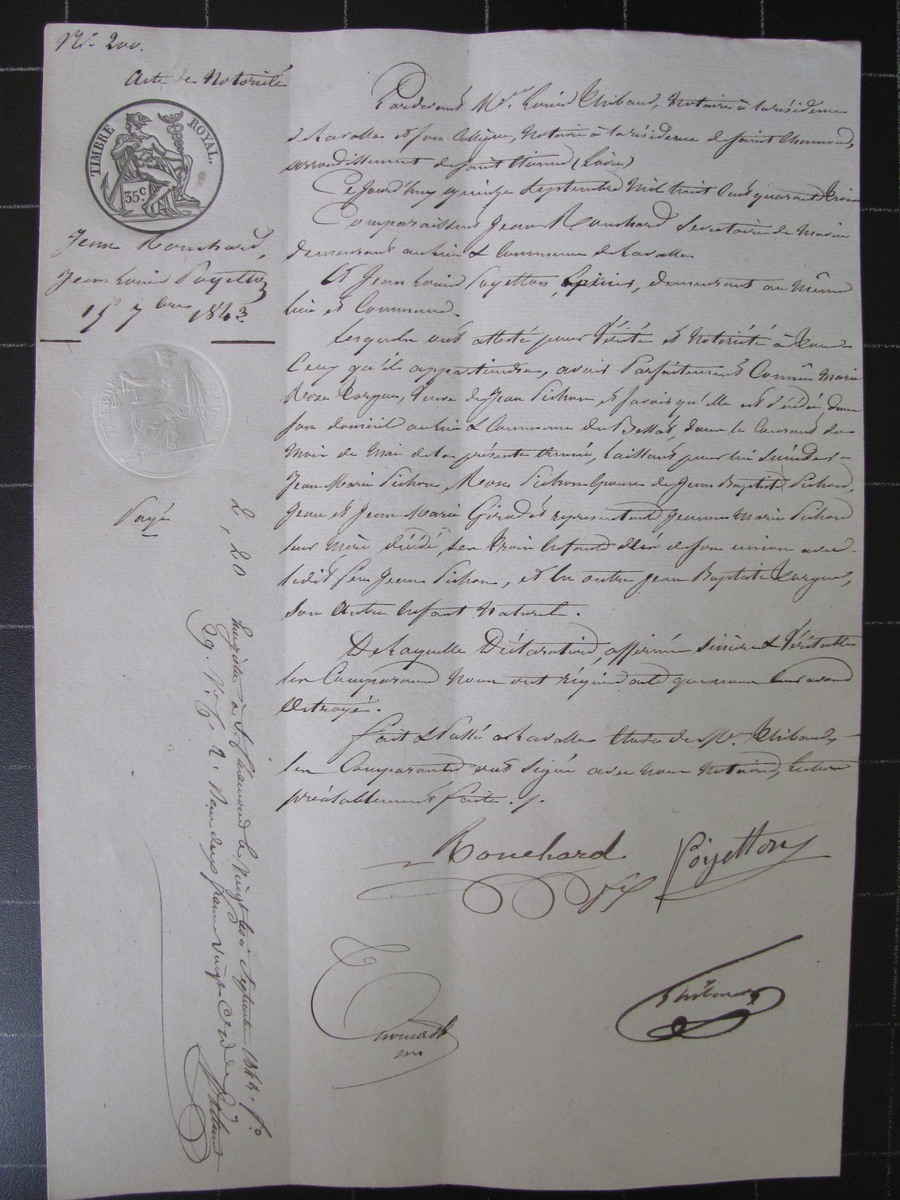 N.º 200.
Acte de Notoriété
TIMBRE ROYAL.
35 c.
Jean Rouchard,
Jean Louis Poyetton
15 7bre 1843
Payé
2, 20
Enregistré à St Chamond le vingt trois septembre 1843. f.º
29. r.º c. 2. Reçu deux francs vingt
Pardevant M.e Louis Thibaud, Notaire à la résidence
de Lavalla et son Collègue, Notaire à la résidence de Saint Chamond,
arrondissement de Saint Etienne (Loire)
Ce jourd'huy quinze septembre mil huit cent quarante trois
Comparaissent Jean Rouchard Secrétaire de Mairie
demeurant au lieu & Commune de Lavalla
Et Jean Louis Poyetton, demeurant au même
lieu et Commune.
Lesquels ont attesté pour Vérité et Notoriété à tous
Ceux qu'il appartiendra, avoir Parfaitement Connu Marie
Rose veuve de Jean Pichon et savoir qu'elle est décédée dans
son domicile au lieu & Commune de Bessat, dans le Courant du
Mois de Mai de la présente Année, laissant pour lui succéder
Jean Marie Pichon, Rose Pichon épouse de Jean Baptiste Pichon,
Jean et Jean Marie représentant Jeanne Marie Pichon
leur mère décédée, ses trois Enfants de son union avec
ledit feu Jean Pichon, et un autre Jean Baptiste
son autre Enfant Naturel.
De Laquelle Déclaration, affirmée sincère & Véritable
les Comparants Nous ont requis acte que nous leur avons
Octroyé.
Fait & Passé à Lavalla Etude de M.e Thibaud,
les Comparants ont signé avec nous Notaires, Lecture
préalablement faite.
Rouchard
Poyetton
Thibaud